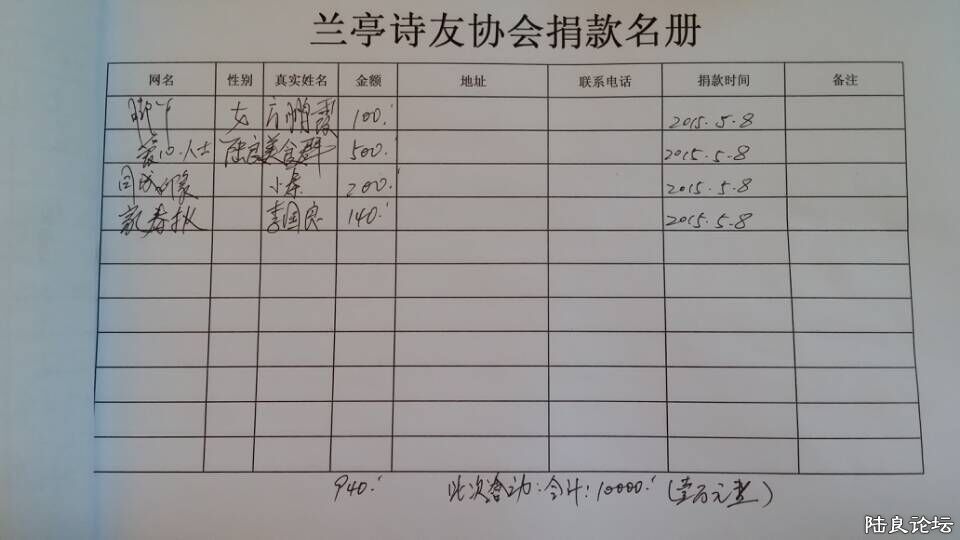 兰亭诗友协会捐款名册
网名 性别 真实姓名 金额 地址 联系电话 捐款时间 备注
女 方鹏霞 100. 2015.5.8
爱心人士 陆良美食群 500. 2015.5.8
同城印象 小李 200. 2015.5.8
新春秋 李国良 140. 2015.5.8
940. 此次活动:合计:10000.(壹万元整)
陆良论坛